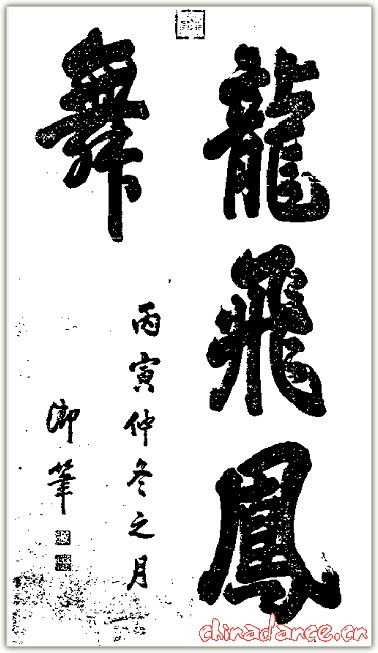 龍飛鳳
舞
丙寅仲冬之月
御筆
chinadance.cn